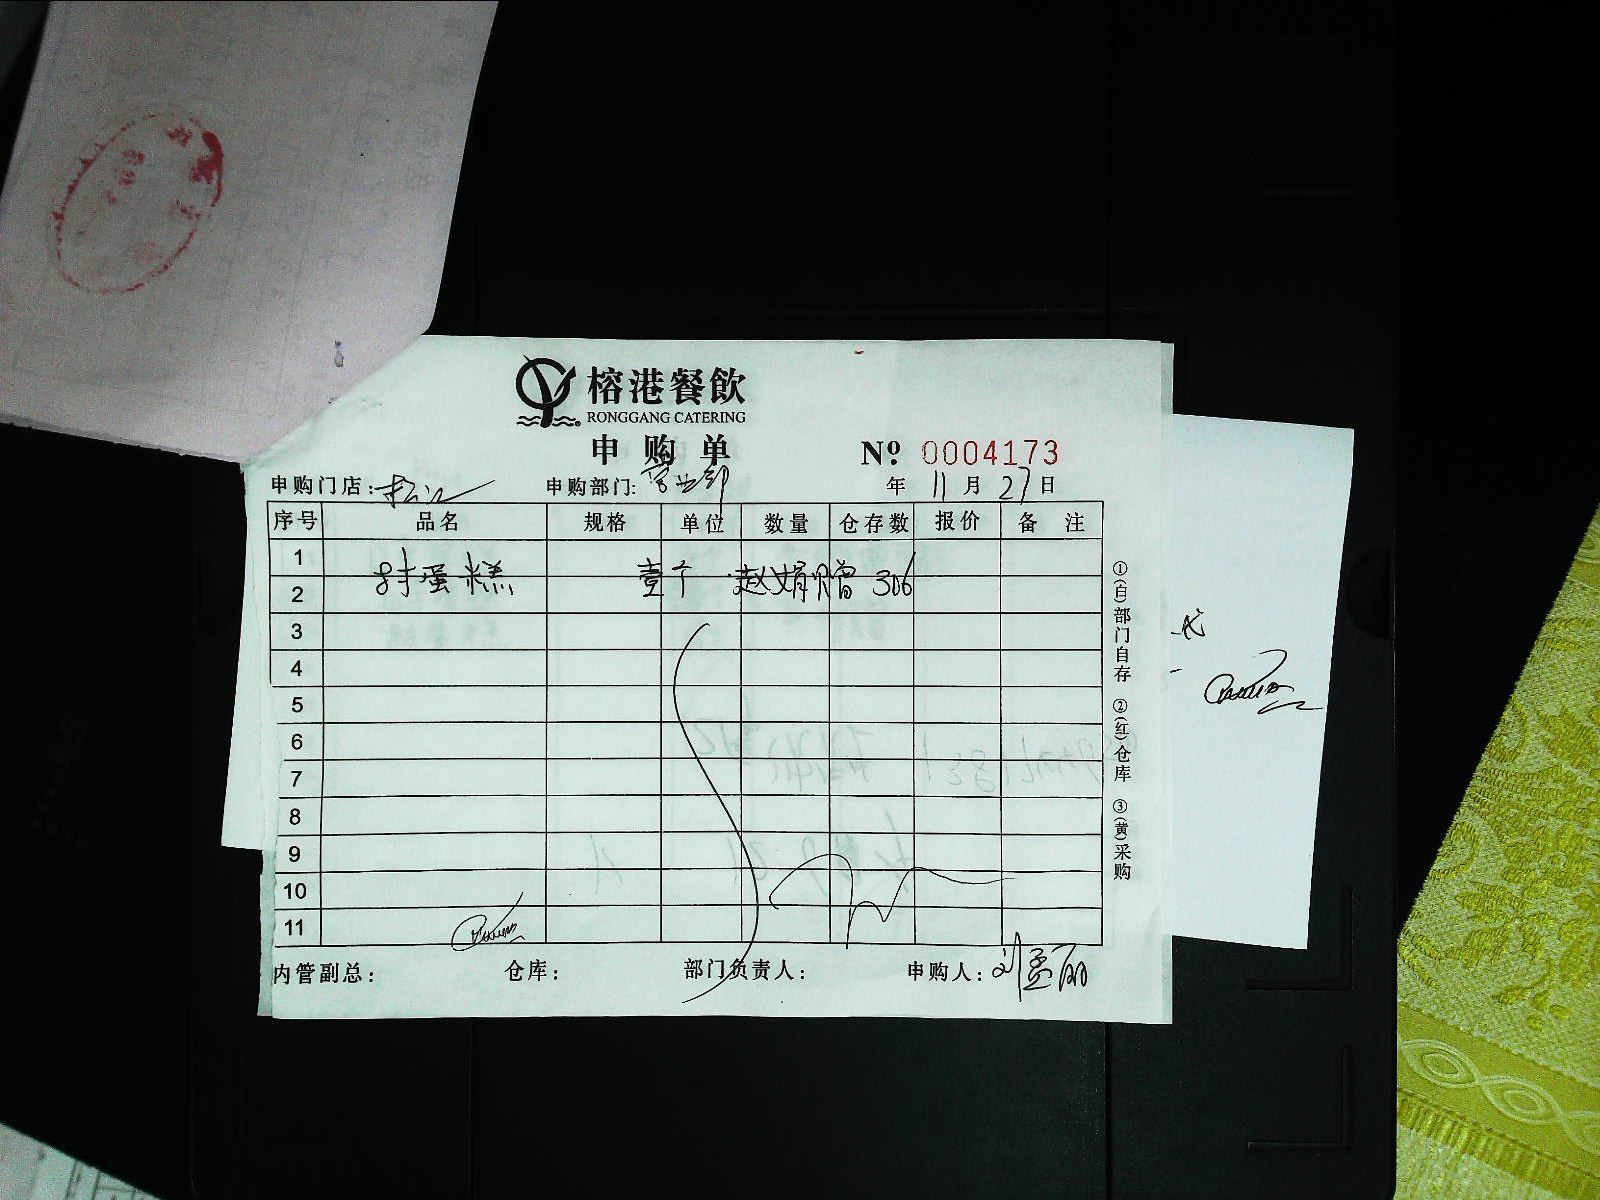 榕港餐飲
RONGGANG CATERING
申购单 № 0004173
申购门店：松江 申购部门：营业部 年 11 月 27 日
序号 品名 规格 单位 数量 仓存数 报价 备 注
1
蛋糕 壹个 赵娟赠 306
2
3
4
5
6
7
8
9
10
11
内管副总： 仓库： 部门负责人： 申购人：刘孟丽
①(白)部门自存 ②(红)仓库 ③(黄)采购